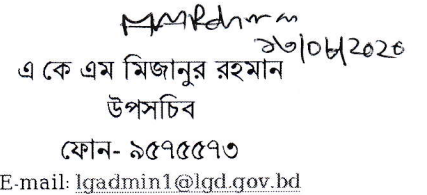 ১৬/০৮/২০২০
এ কে এম মিজানুর রহমান
উপসচিব
ফোন- ৯৫৭৫৫৭৩
E-mail: lgadmin1@lgd.gov.bd